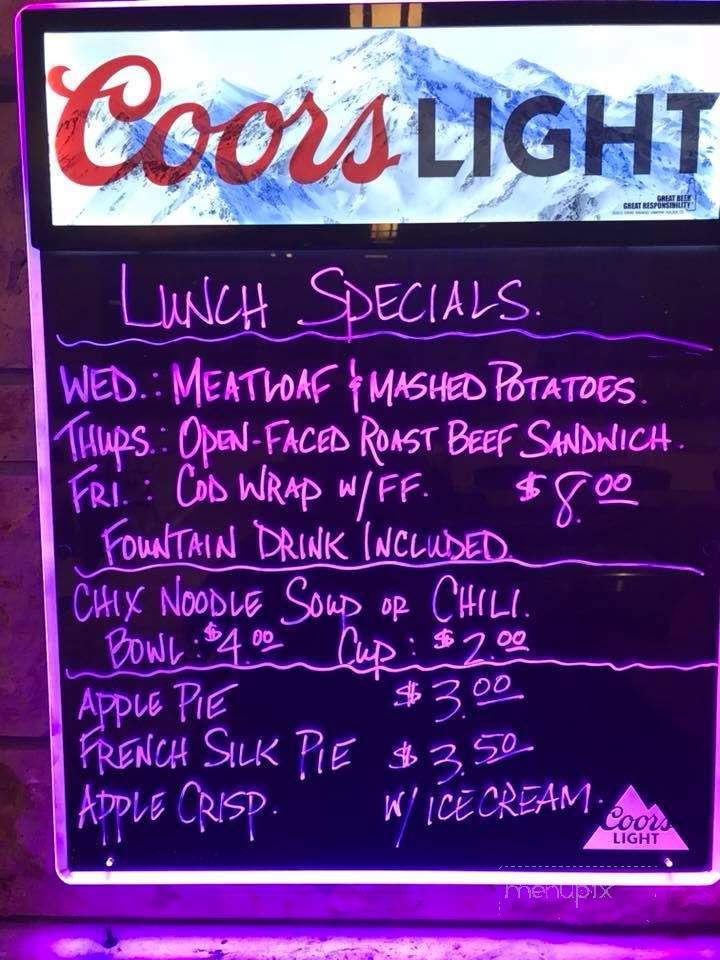 Coors LIGHT
GREAT BEER
GREAT RESPONSIBILITY
LUNCH SPECIALS.
WED.: MEATLOAF & MASHED POTATOES.
THURS.: OPEN-FACED ROAST BEEF SANDWICH.
FRI.: COD WRAP W/FF. $8.00
FOUNTAIN DRINK INCLUDED.
CHIX NOODLE SOUP OR CHILI.
BOWL: $4.00 CUP: $2.00
APPLE PIE $3.00
FRENCH SILK PIE $3.50
APPLE CRISP. W/ ICE CREAM.
Coors
LIGHT
menupix